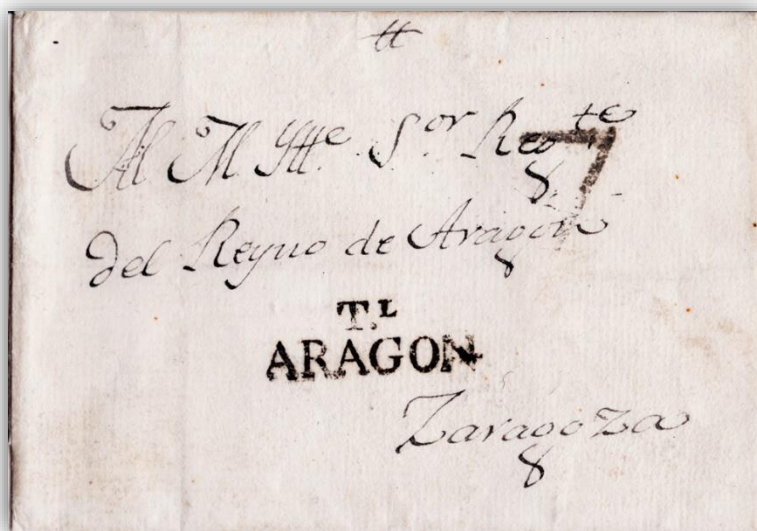 Al M Ytte Sor Regte
7
del Reyno de Aragon
T.L
ARAGON
Zaragoza